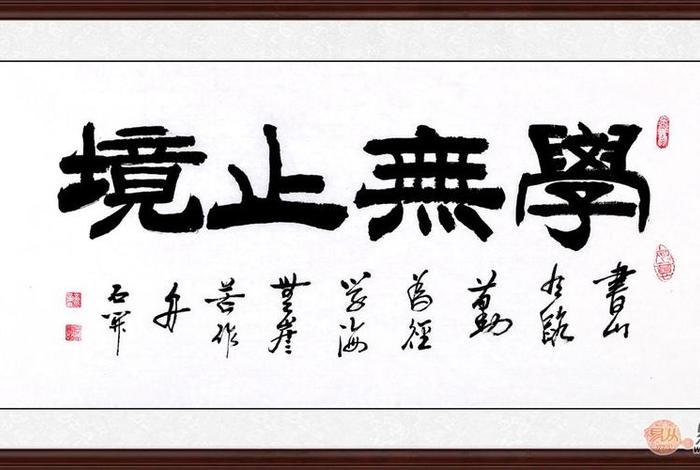 學無止境
書山
有路
勤
為徑
學海
無崖
苦作
舟
石開